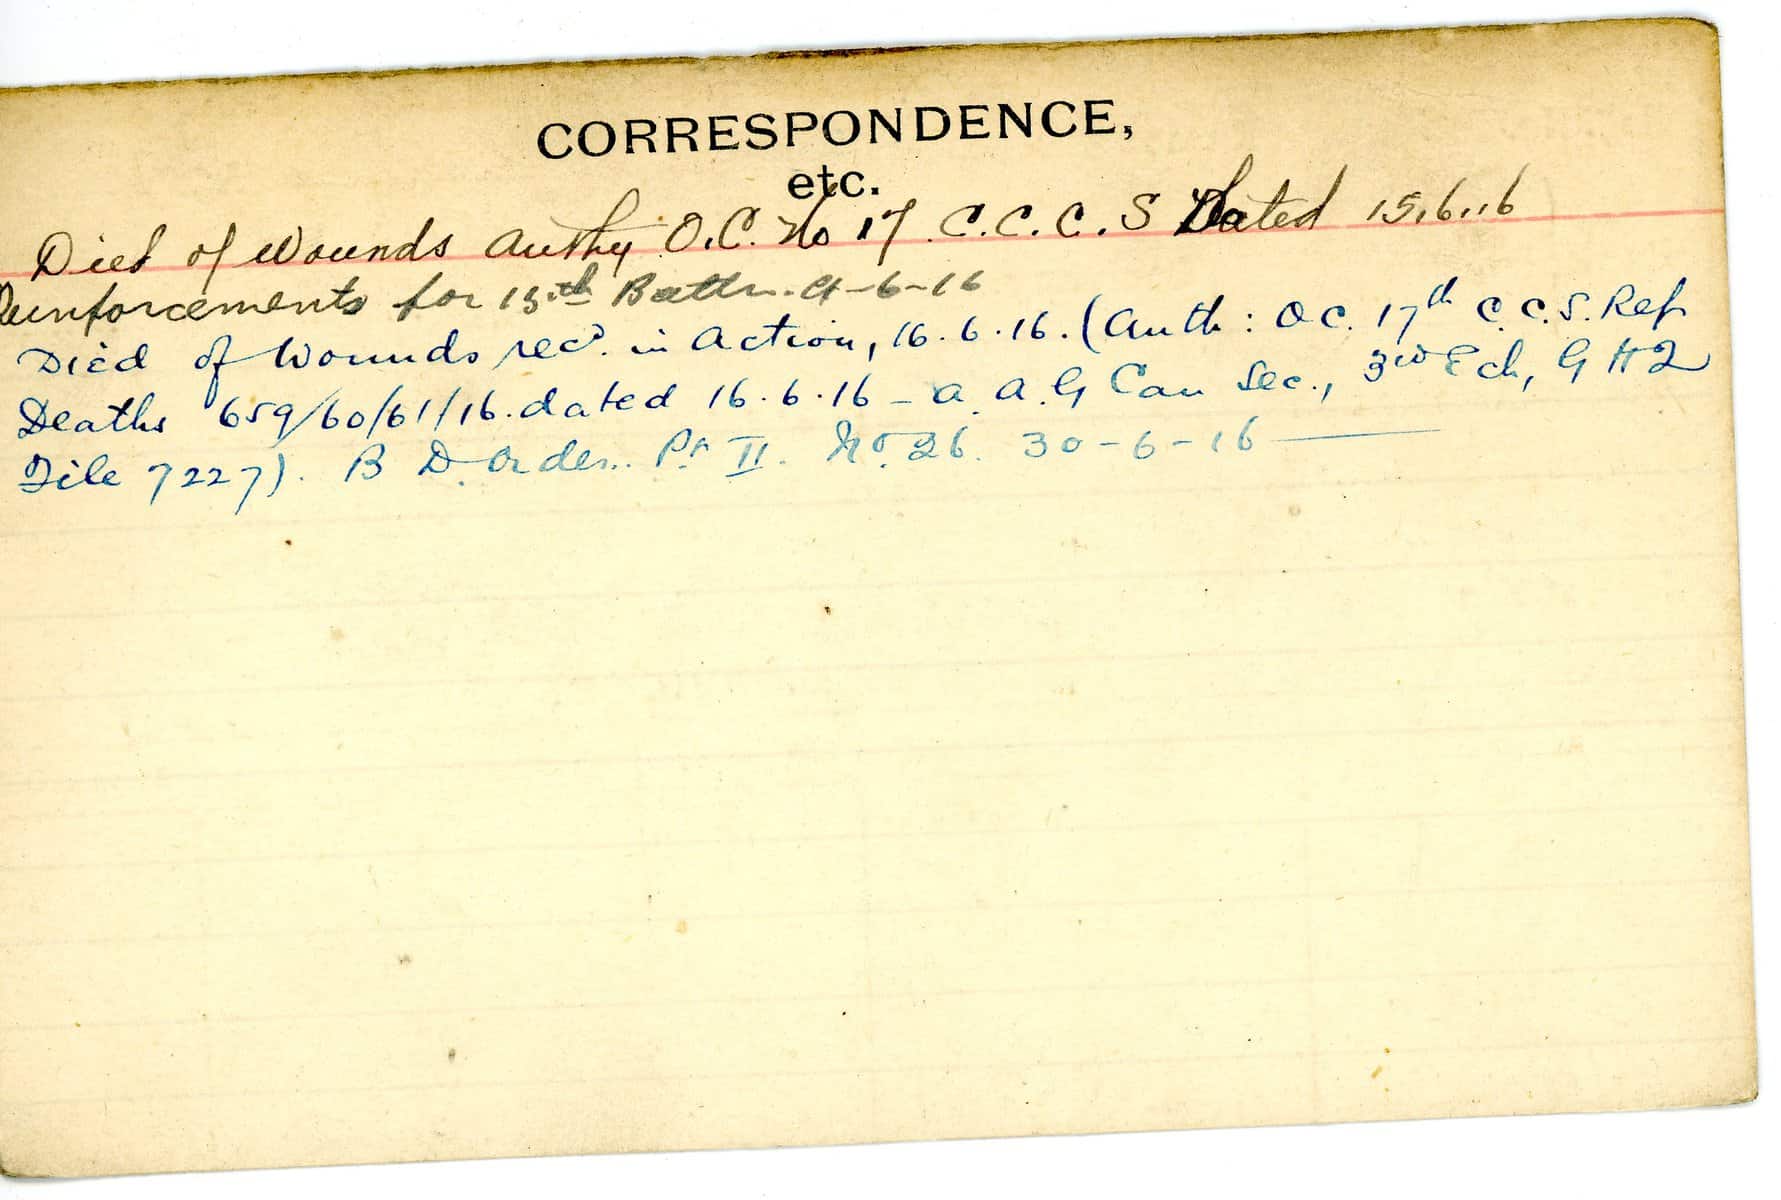 CORRESPONDENCE,
etc.
Died of Wounds Authy O.C. No 17 C.C.C.S Dated 15.6.16
Reinforcements for 13th Battn. 4-6-16
Died of Wounds recd. in Action, 16.6.16. (Auth: O C. 17th C.C.S. Ref
Deaths 659/60/61/16. dated 16.6.16 - A.A.G Can Sec., 3rd Ech, G H Q
File 7227). B D Order. Pt II. No. 26. 30-6-16